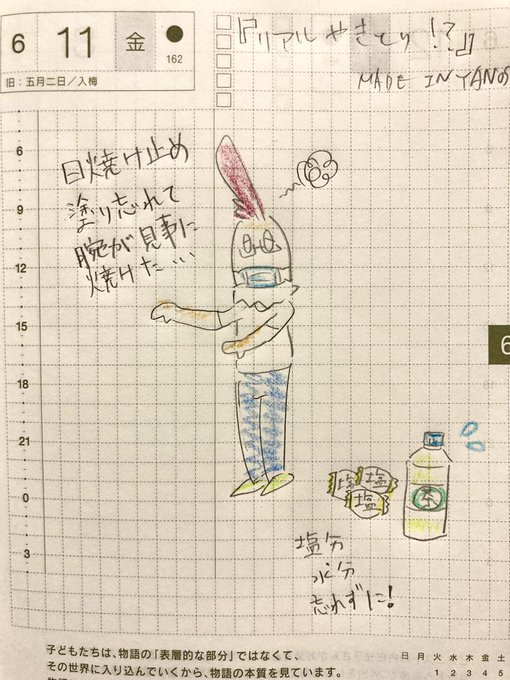 6
11
金
162
旧:五月二日／入梅
『リアルやきとり!?』
MADE IN YANOS
日焼け止め
塗り忘れて
腕が見事に
焼けた…
6
9
12
15
18
21
0
3
6
塩
塩
塩
茶
塩分
水分
忘れずに!
子どもたちは、物語の「表層的な部分」ではなくて、
その世界に入り込んでいくから、物語の本質を見ています。
日 月 火 水 木 金 土
1 2 3 4 5